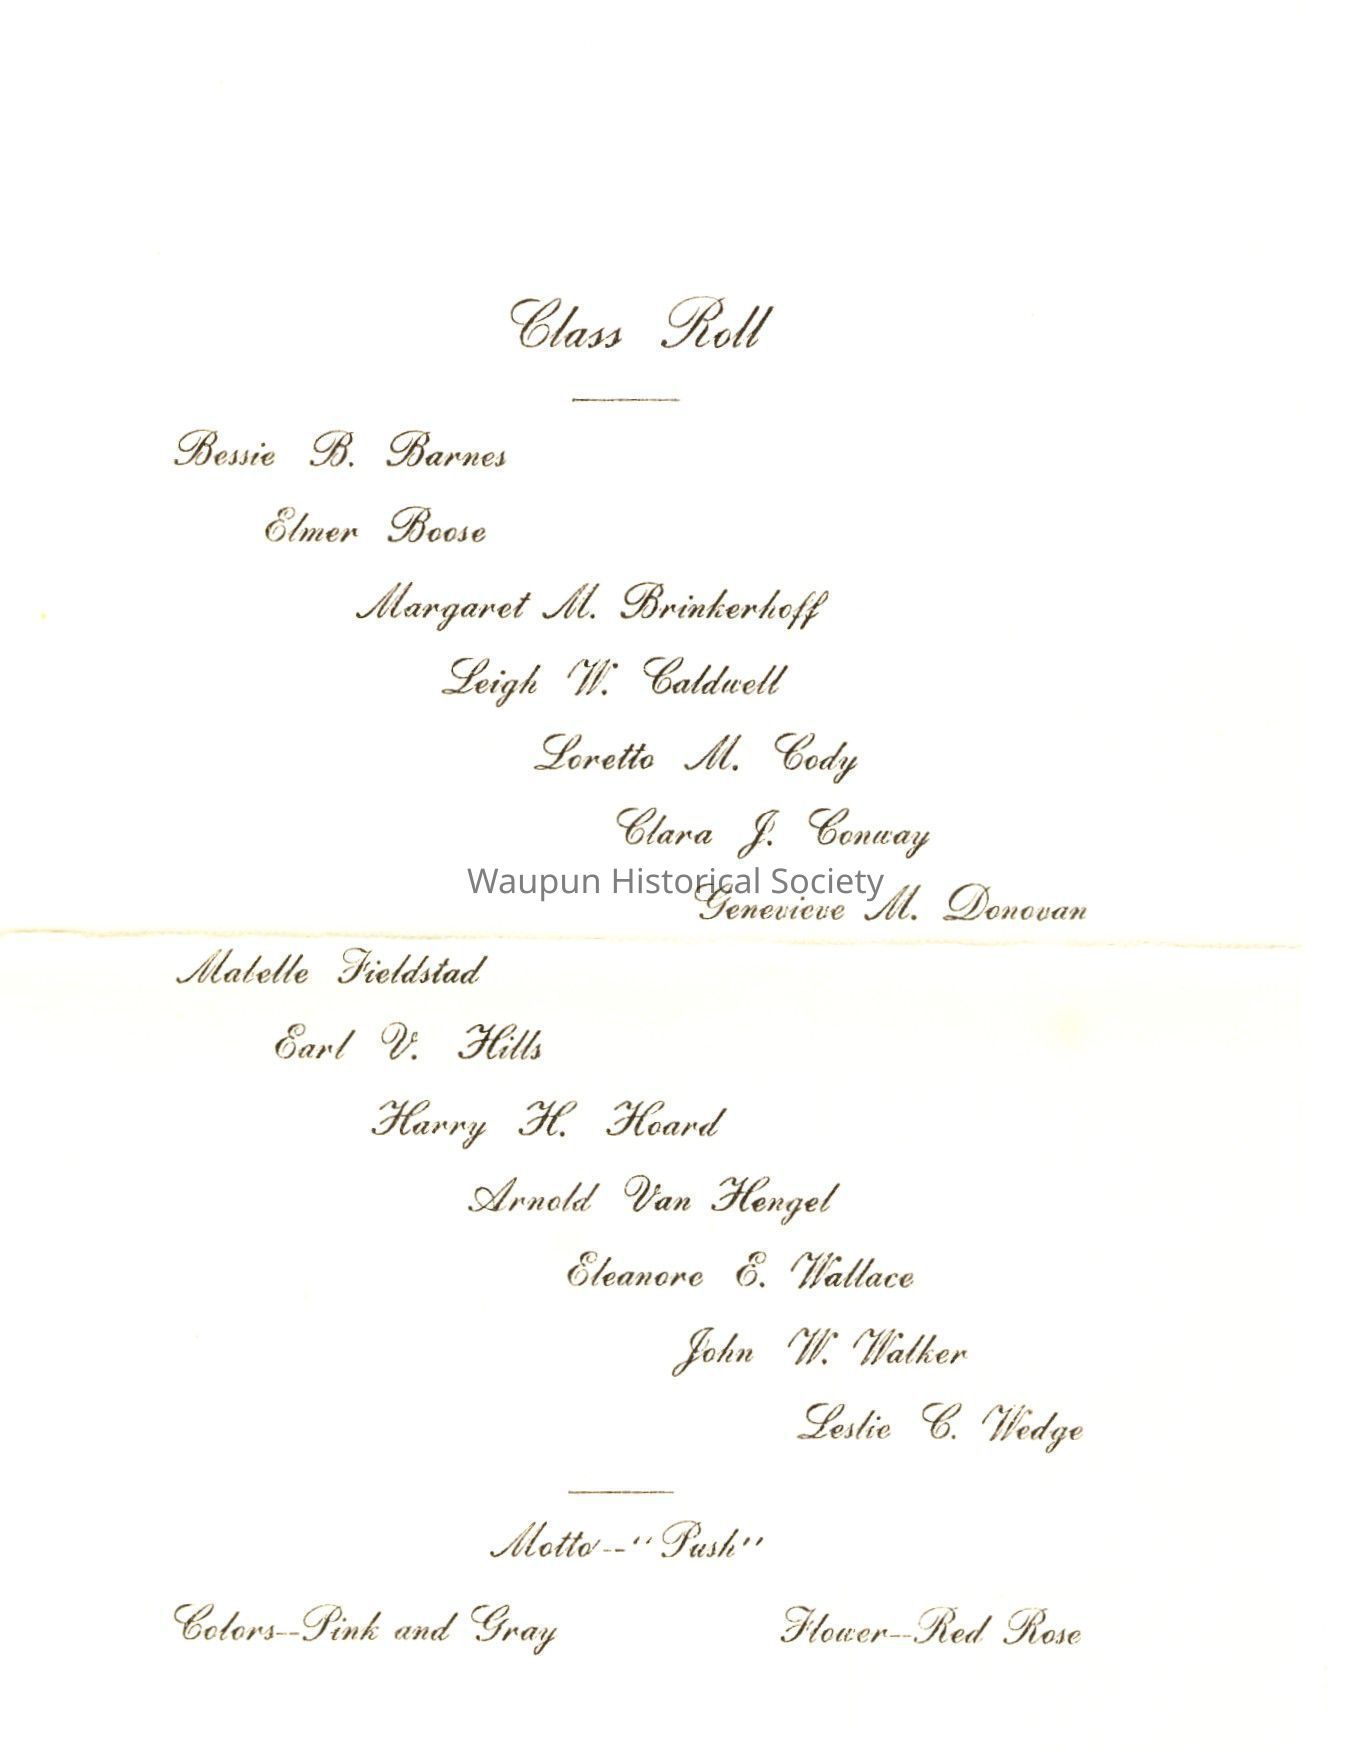 Class Roll
Bessie B. Barnes
Elmer Boose
Margaret M. Brinkerhoff
Leigh W. Caldwell
Loretto M. Cody
Clara J. Conway
Waupun Historical Society
Genevieve M. Donovan
Mabelle Fieldstad
Earl V. Hills
Harry H. Hoard
Arnold Van Hengel
Eleanore E. Wallace
John W. Walker
Leslie C. Wedge
Motto--"Push"
Colors--Pink and Gray Flower--Red Rose